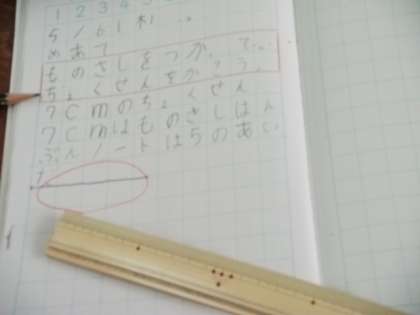 1 2 3 4
5/61 木
めあて
ものさしをつかって
ちょくせんをかこう。
7cmのちょくせん
7cmはものさしはん
ぶんノートは5のあい